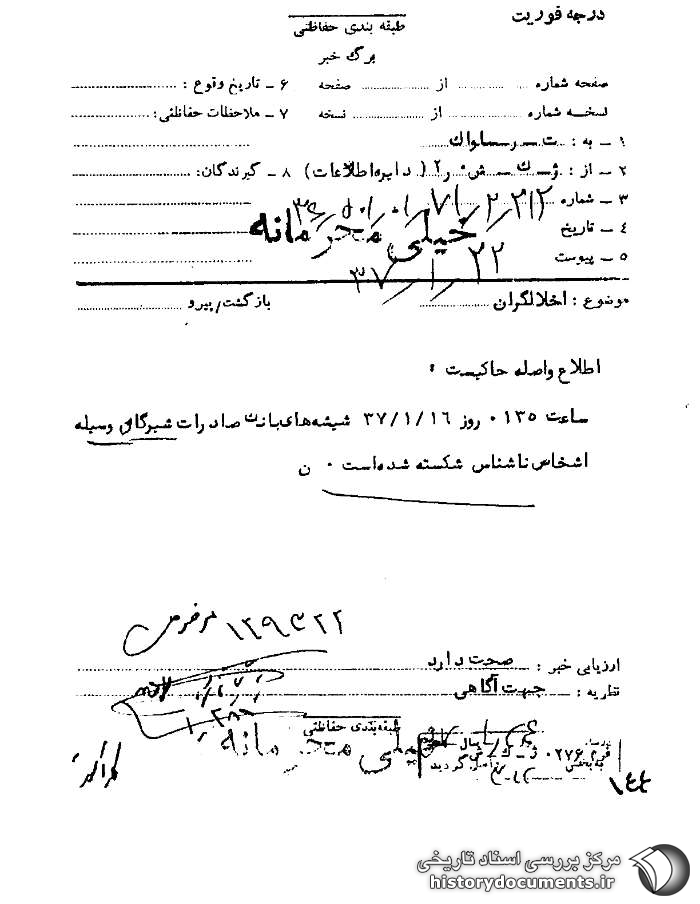 درجه فوریت
طبقه بندی حفاظتی
برگ خبر
صفحه شماره ........ از ........ صفحه ۶ ـ تاریخ وقوع :
نسخه شماره ........ از ........ نسخه ۷ ـ ملاحظات حفاظتی :
۱ ـ به : ت ـ ر ساواک
۲ ـ از : ژ ـ ک ـ ش ر۲ ( دایره اطلاعات ) ۸ ـ گیرندگان :
۳ ـ شماره
۴ ـ تاریخ
خیلی محرمانه
۵ ـ پیوست
۳۷/۱/۲۲
موضوع : اخلالگران بازگشت/پیرو
اطلاع واصله حاکیست :
ساعت ۰۱۳۵ روز ۳۷/۱/۱۶ شیشه های بانک صادرات شیرگاه وسیله
اشخاص ناشناس شکسته شده است ۰ ن
ارزیابی خبر : صحت دارد
نظریه : جهت آگاهی
طبقه بندی حفاظتی
خیلی محرمانه
۱۴۴
مرکز بررسی اسناد تاریخی
historydocuments.ir